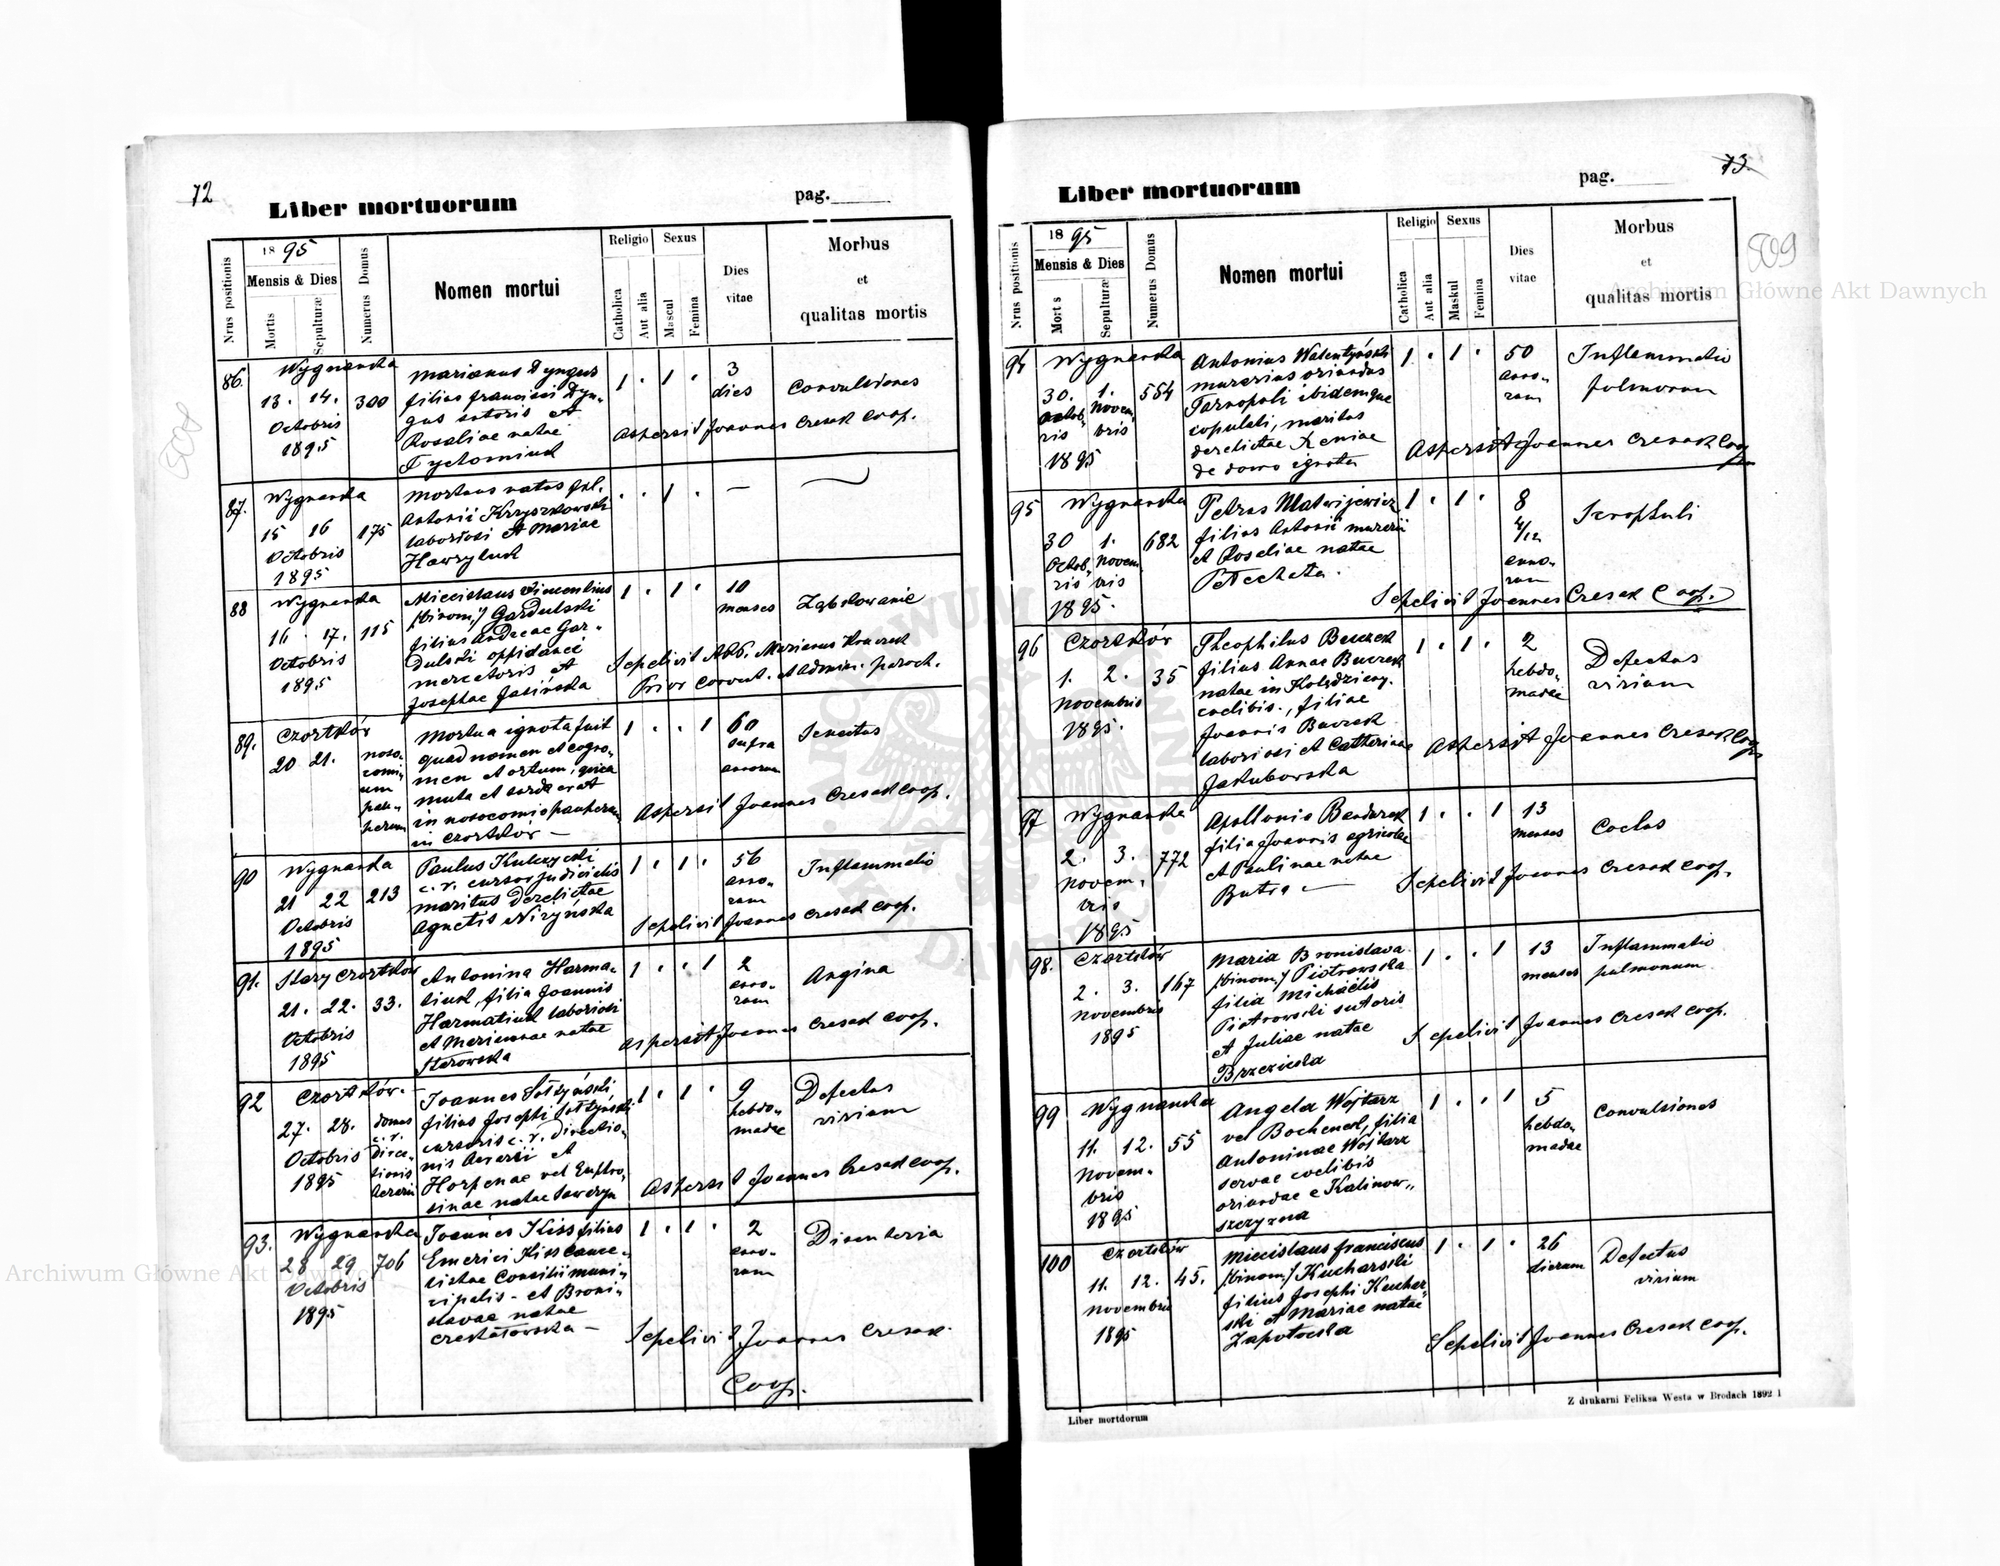 72
Liber mortuorum
pag.
Nrus positionis
1895
Mensis & Dies
Mortis
Sepulturæ
Numerus Domus
Nomen mortui
Religio
Catholica
Aut alia
Sexus
Mascul
Femina
Dies
vitae
Morbus
et
qualitas mortis
86.
Wygnanka
13. 14.
Octobris
1895
300
Marianus Dyngus
filius Francisci Dyn-
gus sutoris et
Rosaliae natae
1 . 1 .
3
dies
Convulsiones
Aspersit Joannes Cresak Coop.
87.
Wygnanka
15 16
Octobris
1895
175
Mortuus natus fil.
Antonii Krzyszkowski
laboriosi et Mariae
Hawryluk
. . 1 .
—
88
Wygnanka
16 17.
Octobris
1895
115
Miecislaus Simeonlius
(binom.) Gardulski
filius Andreae Gar-
dulski oppidanei
mercatoris et
Josephae Jasińska
1 . 1 .
10
menses
Ząbkowanie
Sepelivit Marianus
Prior Convent. Administ. paroch.
89.
Czortków
20 21.
noso-
comi-
um
pau-
perum
Mortua ignota fuit
quad nomen et cogno-
men et ortum, quia
muta et surda erat
in nosocomio pauperum
in Czortków —
1 . . 1
60
supra
annorum
Senectus
Aspersit Joannes Cresak Coop.
90
Wygnanka
21 22
Octobris
1895
213
Paulus Kulczycki
c. r. cursor judicialis
maritus derelictae
Agnetis Niżyńska
1 . 1 .
56
anno-
rum
Inflammatio
Sepelivit Joannes Cresak Coop.
91.
Stary Czortków
21. 22.
Octobris
1895
33.
Antonina Harma-
tiuk, filia Joannis
Harmatiuk laboriosi
et Mariannae natae
Starowska
1 . . 1
2
anno-
rum
Angina
Aspersit Joannes Cresak Coop.
92
Czortków. —
27. 28.
Octobris
1895
domus
c. r.
Direc-
tionis
Aerarii
Joannes Sołtyński
filius Josephi Sołtyński
cursoris c. r. directio-
nis Aerarii et
Horpenae vel Euphro-
sinae natae Sawczyn
1 . 1 .
9
hebdo-
madae
Defectus
virium
Aspersit Joannes Cresak Coop.
93.
Wygnanka
28 29
Octobris
1895
706
Joannes Kiss filius
Emerici Kiss cance-
listae Consilii muni-
cipalis - et Broni-
slavae natae
1 . 1 .
2
anno-
rum
Disenteria
Sepelivit Joannes Cresak
Coop.
73.
509
Liber mortuorum
pag.
Nrus positionis
1895
Mensis & Dies
Mort s
Sepulturæ
Numerus Domus
Nomen mortui
Religio
Catholica
Aut alia
Sexus
Maskul
Femina
Dies
vitae
Morbus
et
qualitas mortis
94
Wygnanka
30. 1.
Octob- Novem-
ris bris
1895
554
Antonius Walentyński
murarius oriundus
Tarnopoli ibidemque
copulati, maritus
derelictae Xeniae
de domo ignota
1 . 1 .
50
anno-
rum
Inflammatio
pulmonum
Aspersit Joannes Cresak Coop
95
Wygnanka
30 1.
Octob- Novem
ris bris
1895.
682
Petrus Matwijewicz
filius Antonii murarii
et Rosaliae natae
Petecheta.
1 . 1 .
8
4/12
anno-
rum
Scrophuli
Sepelivit Joannes Cresak Coop.
96
Czortków
1. 2.
Novembris
1895.
35
Theophilus Buczek
filius Annae Buczek
natae in Kolędziany.
coelibis., filiae
Joannis Buczek
laboriosi et Catherinae
Jakubowska
1 . 1 .
2
hebdo-
madae
Defectus
virium
Aspersit Joannes Cresak Coop
97
Wygnanka
2. 3.
Novem-
bris
1895
772
Apollonia Bendarek
filia Joannis agricolae
et Paulinae natae
Butra —
1 . . 1
13
menses
Coclus
Sepelivit Joannes Cresak Coop.
98.
Czortków
2. 3.
Novembris
1895
167
Maria Bronislava
(binom.) Piotrowska
filia Michaelis
Piotrowski sutoris
et Juliae natae
Brzezicka
1 . . 1
13
menses
Inflammatio
pulmonum
Sepelivit Joannes Cresak Coop.
99
Wygnanka
11. 12.
Novem-
bris
1895
55
Angela Wojtarz
vel Bochenek, filia
Antoninae Wojtarz
servae coelibis
oriundae e Kalinow-
szczyzna
1 . . 1
5
hebdo-
madae
Convulsiones
100
Czortków
11. 12.
Novembris
1895
45.
Miecislaus Franciscus
(binom.) Kucharski
filius Josephi Kuchar-
ski et Mariae natae
Zapotocka
1 . 1 .
26
dierum
Defectus
virium
Sepelivit Joannes Cresak Coop.
Liber mortdorum
Z drukarni Feliksa Westa w Brodach 1892 l
Archiwum Główne Akt Dawnych
Archiwum Główne Akt Dawnych